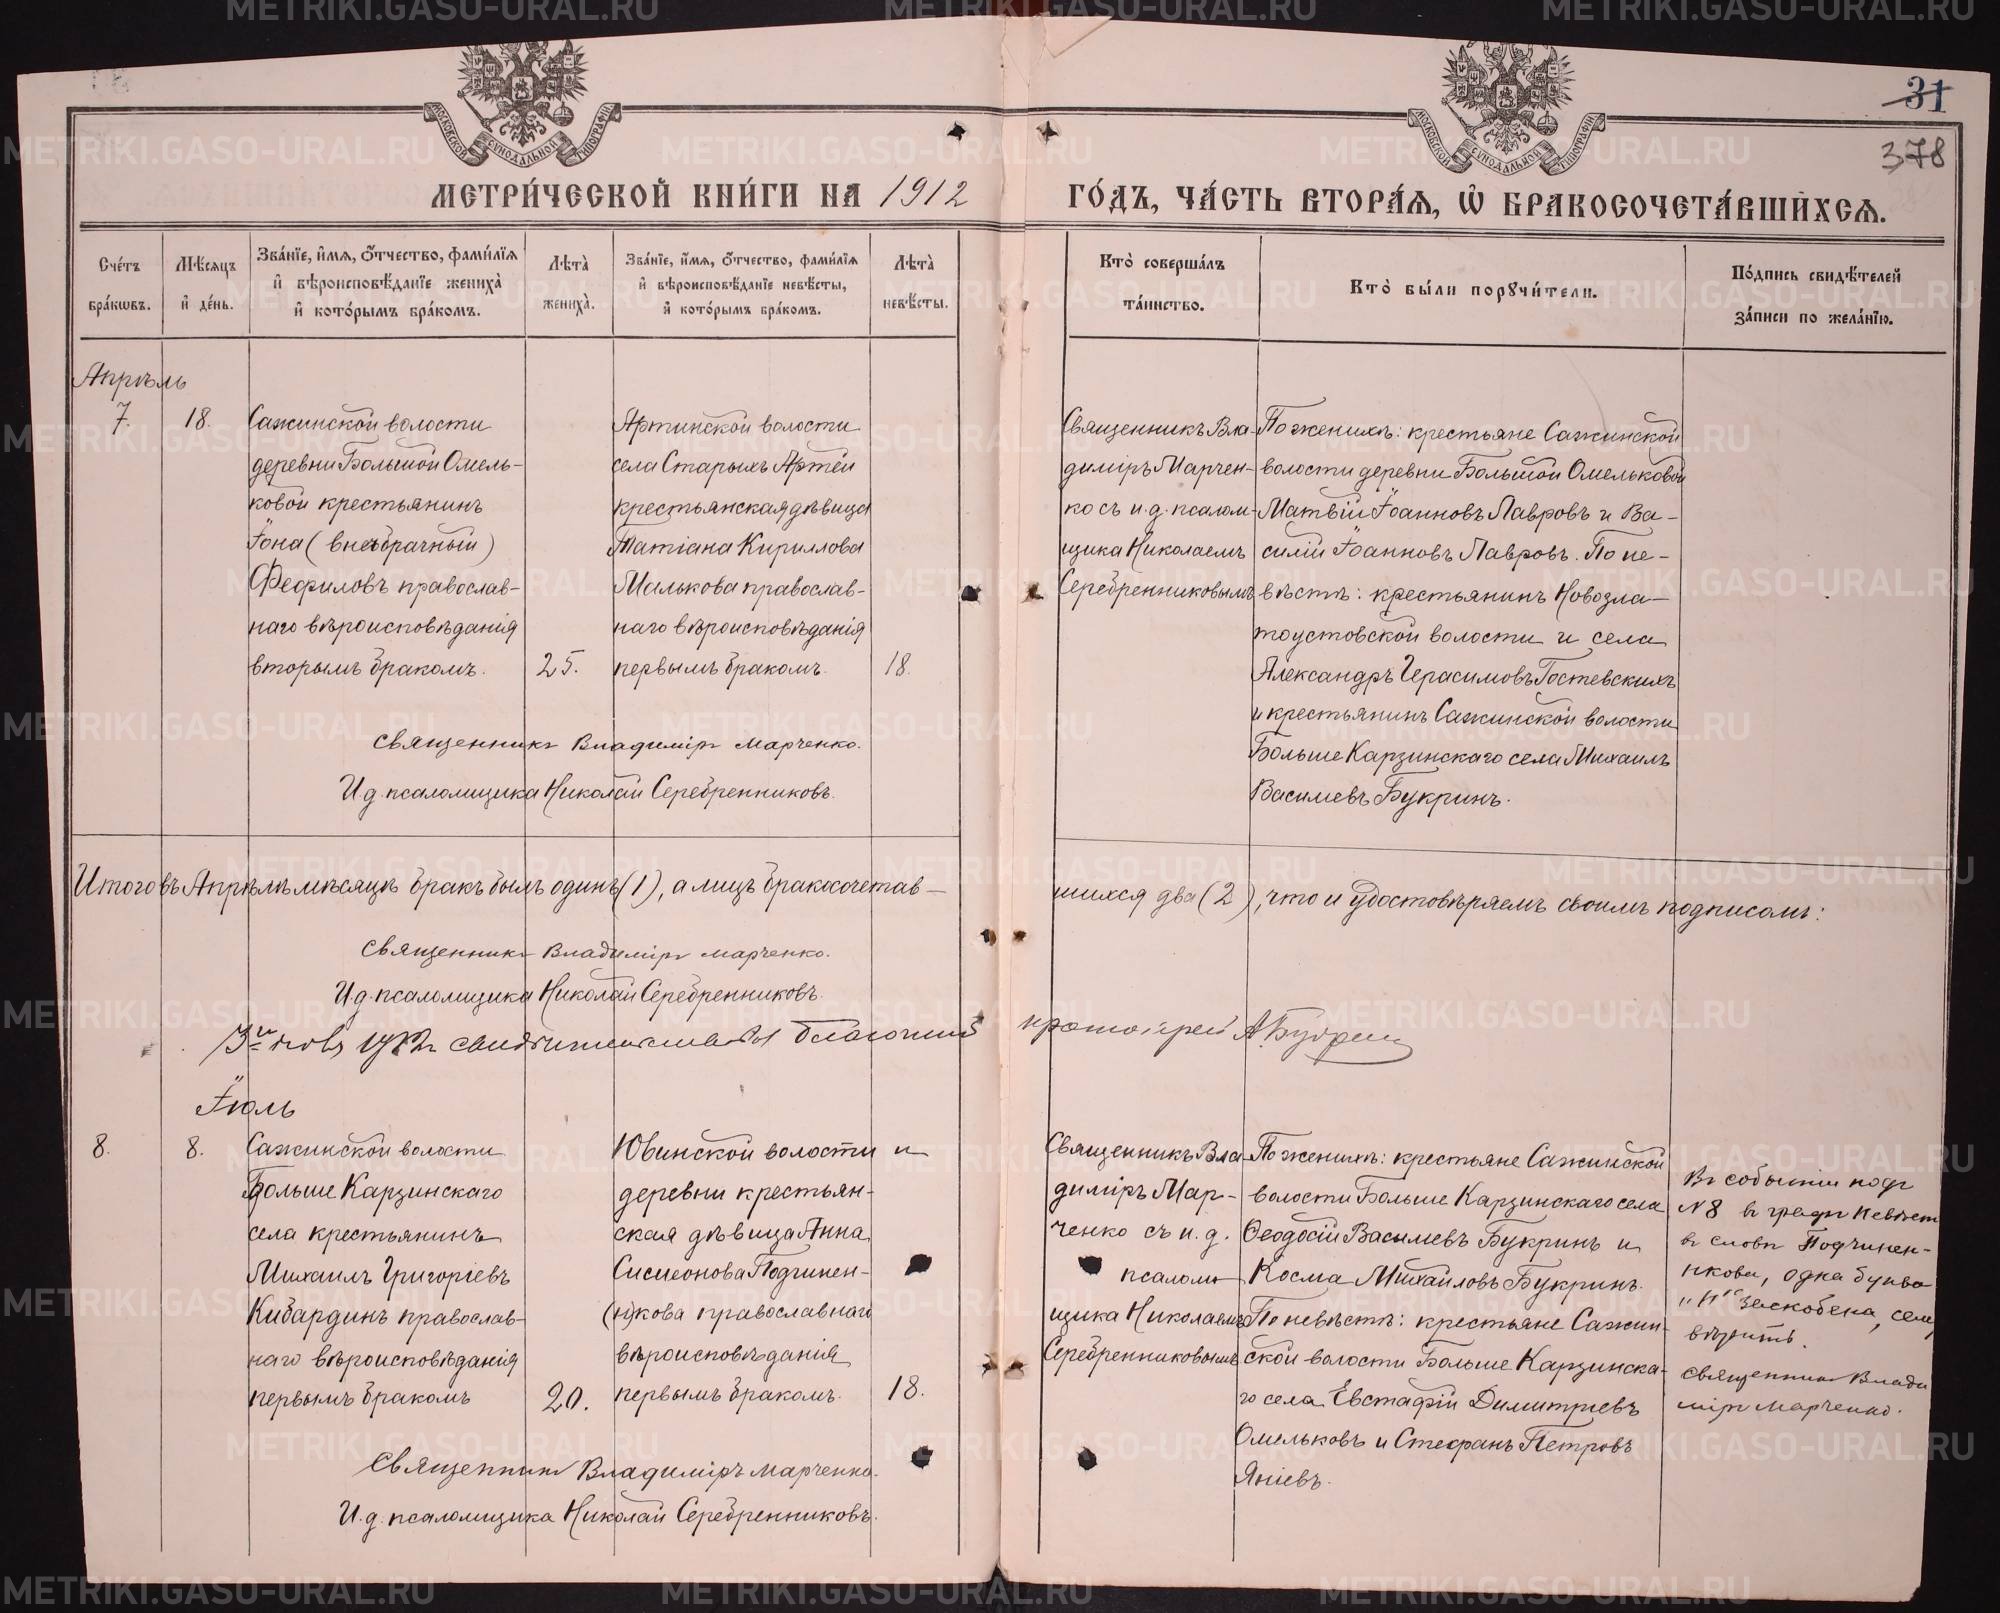 31
378
МОСКОВСКОЙ СѴНОДАЛЬНОЙ ТИПОГРАФІИ
МОСКОВСКОЙ СѴНОДАЛЬНОЙ ТИПОГРАФІИ
МЕТРИ́ЧЕСКОЙ КНИ́ГИ НА 1912
ГО́ДЪ, ЧА́СТЬ ВТОРА́Ѧ, Ѡ҆ БРАКОСОЧЕТА́ВШИХСѦ.
Сче́тъ
бра́кѡвъ.
Мѣ́сѧцъ
и҆ де́нь.
Зва́нїе, и҆́мѧ, ѻ҆́тчество, фами́лїѧ
и҆ вѣроисповѣ́данїе жениха̀
и҆ кото́рымъ бра́комъ.
Лѣта̀
жениха̀.
Зва́нїе, и҆́мѧ, ѻ҆́тчество, фами́лїѧ
и҆ вѣроисповѣ́данїе невѣ́сты,
и҆ кото́рымъ бра́комъ.
Лѣта̀
невѣ́сты.
Кто̀ соверша́лъ
та́инство.
Кто̀ бы́ли порꙋчи́тели.
По́дпись свидѣ́телей
за́писи по жела́нїю.
Апрѣль
7.
18.
Сажинской волости
деревни Большой Омель-
ковой крестьянинъ
Іона (внебрачный)
Феофиловъ православ-
наго вѣроисповѣданія
вторымъ бракомъ.
25.
Артинской волости
села Старыхъ Артей
крестьянская дѣвица
Татіана Кириллова
Малькова православ-
наго вѣроисповѣданія
первымъ бракомъ.
18.
Священникъ Вла-
диміръ Марчен-
ко съ и.д. псалом-
щика Николаемъ
Серебренниковымъ
По женихѣ: крестьяне Сажинской
волости деревни Большой Омельковой
Матвій Іоанновъ Лавровъ и Ва-
силій Іоанновъ Лавровъ. По не-
вѣстѣ: крестьянинъ Новозла-
тоустовской волости и села
Александръ Герасимовъ Гостевскихъ
и крестьянинъ Сажинской волости
Больше Карзинскаго села Михаилъ
Васильевъ Букринъ.
Священникъ Владиміръ Марченко.
И.д. псаломщика Николай Серебренниковъ.
Итого въ Апрѣлѣ мѣсяцѣ бракъ былъ одинъ (1), а лицъ бракосочетав-
шихся два (2), что и удостовѣряемъ своимъ подписомъ:
Священникъ Владиміръ Марченко.
И.д. псаломщика Николай Серебренниковъ.
благочинный
протоіерей А. Букрин
Іюль
8.
8.
Сажинской волости
Больше Карзинскаго
села крестьянинъ
Михаилъ Григоріевъ
Кибардинъ православ-
наго вѣроисповѣданія
первымъ бракомъ
20.
Ювинской волости и
деревни крестьян-
ская дѣвица Анна
Сисионова Подчинен-
(н)кова православнаго
вѣроисповѣданія
первымъ бракомъ.
18.
Священникъ Вла
диміръ Мар-
ченко съ и.д.
псалом-
щика Николаемъ
Серебренниковымъ
По женихѣ: крестьяне Сажинской
волости Больше Карзинскаго села
Ѳеодосій Васильевъ Букринъ и
Косма Михайловъ Букринъ.
По невѣстѣ: крестьяне Сажин-
ской волости Больше Карзинска-
го села Евстафій Димитріевъ
Омельковъ и Стефанъ Петровъ
Яніевъ.
Въ событіи подъ
№ 8 въ графѣ невѣст
въ словѣ Подчинен-
нкова, одна буква
„Н“ заскоблена, сему
вѣрить.
Священникъ Влади
міръ Марченко.
Священникъ Владиміръ Марченко.
И.д. псаломщика Николай Серебренниковъ.
METRIKI.GASO-URAL.RU